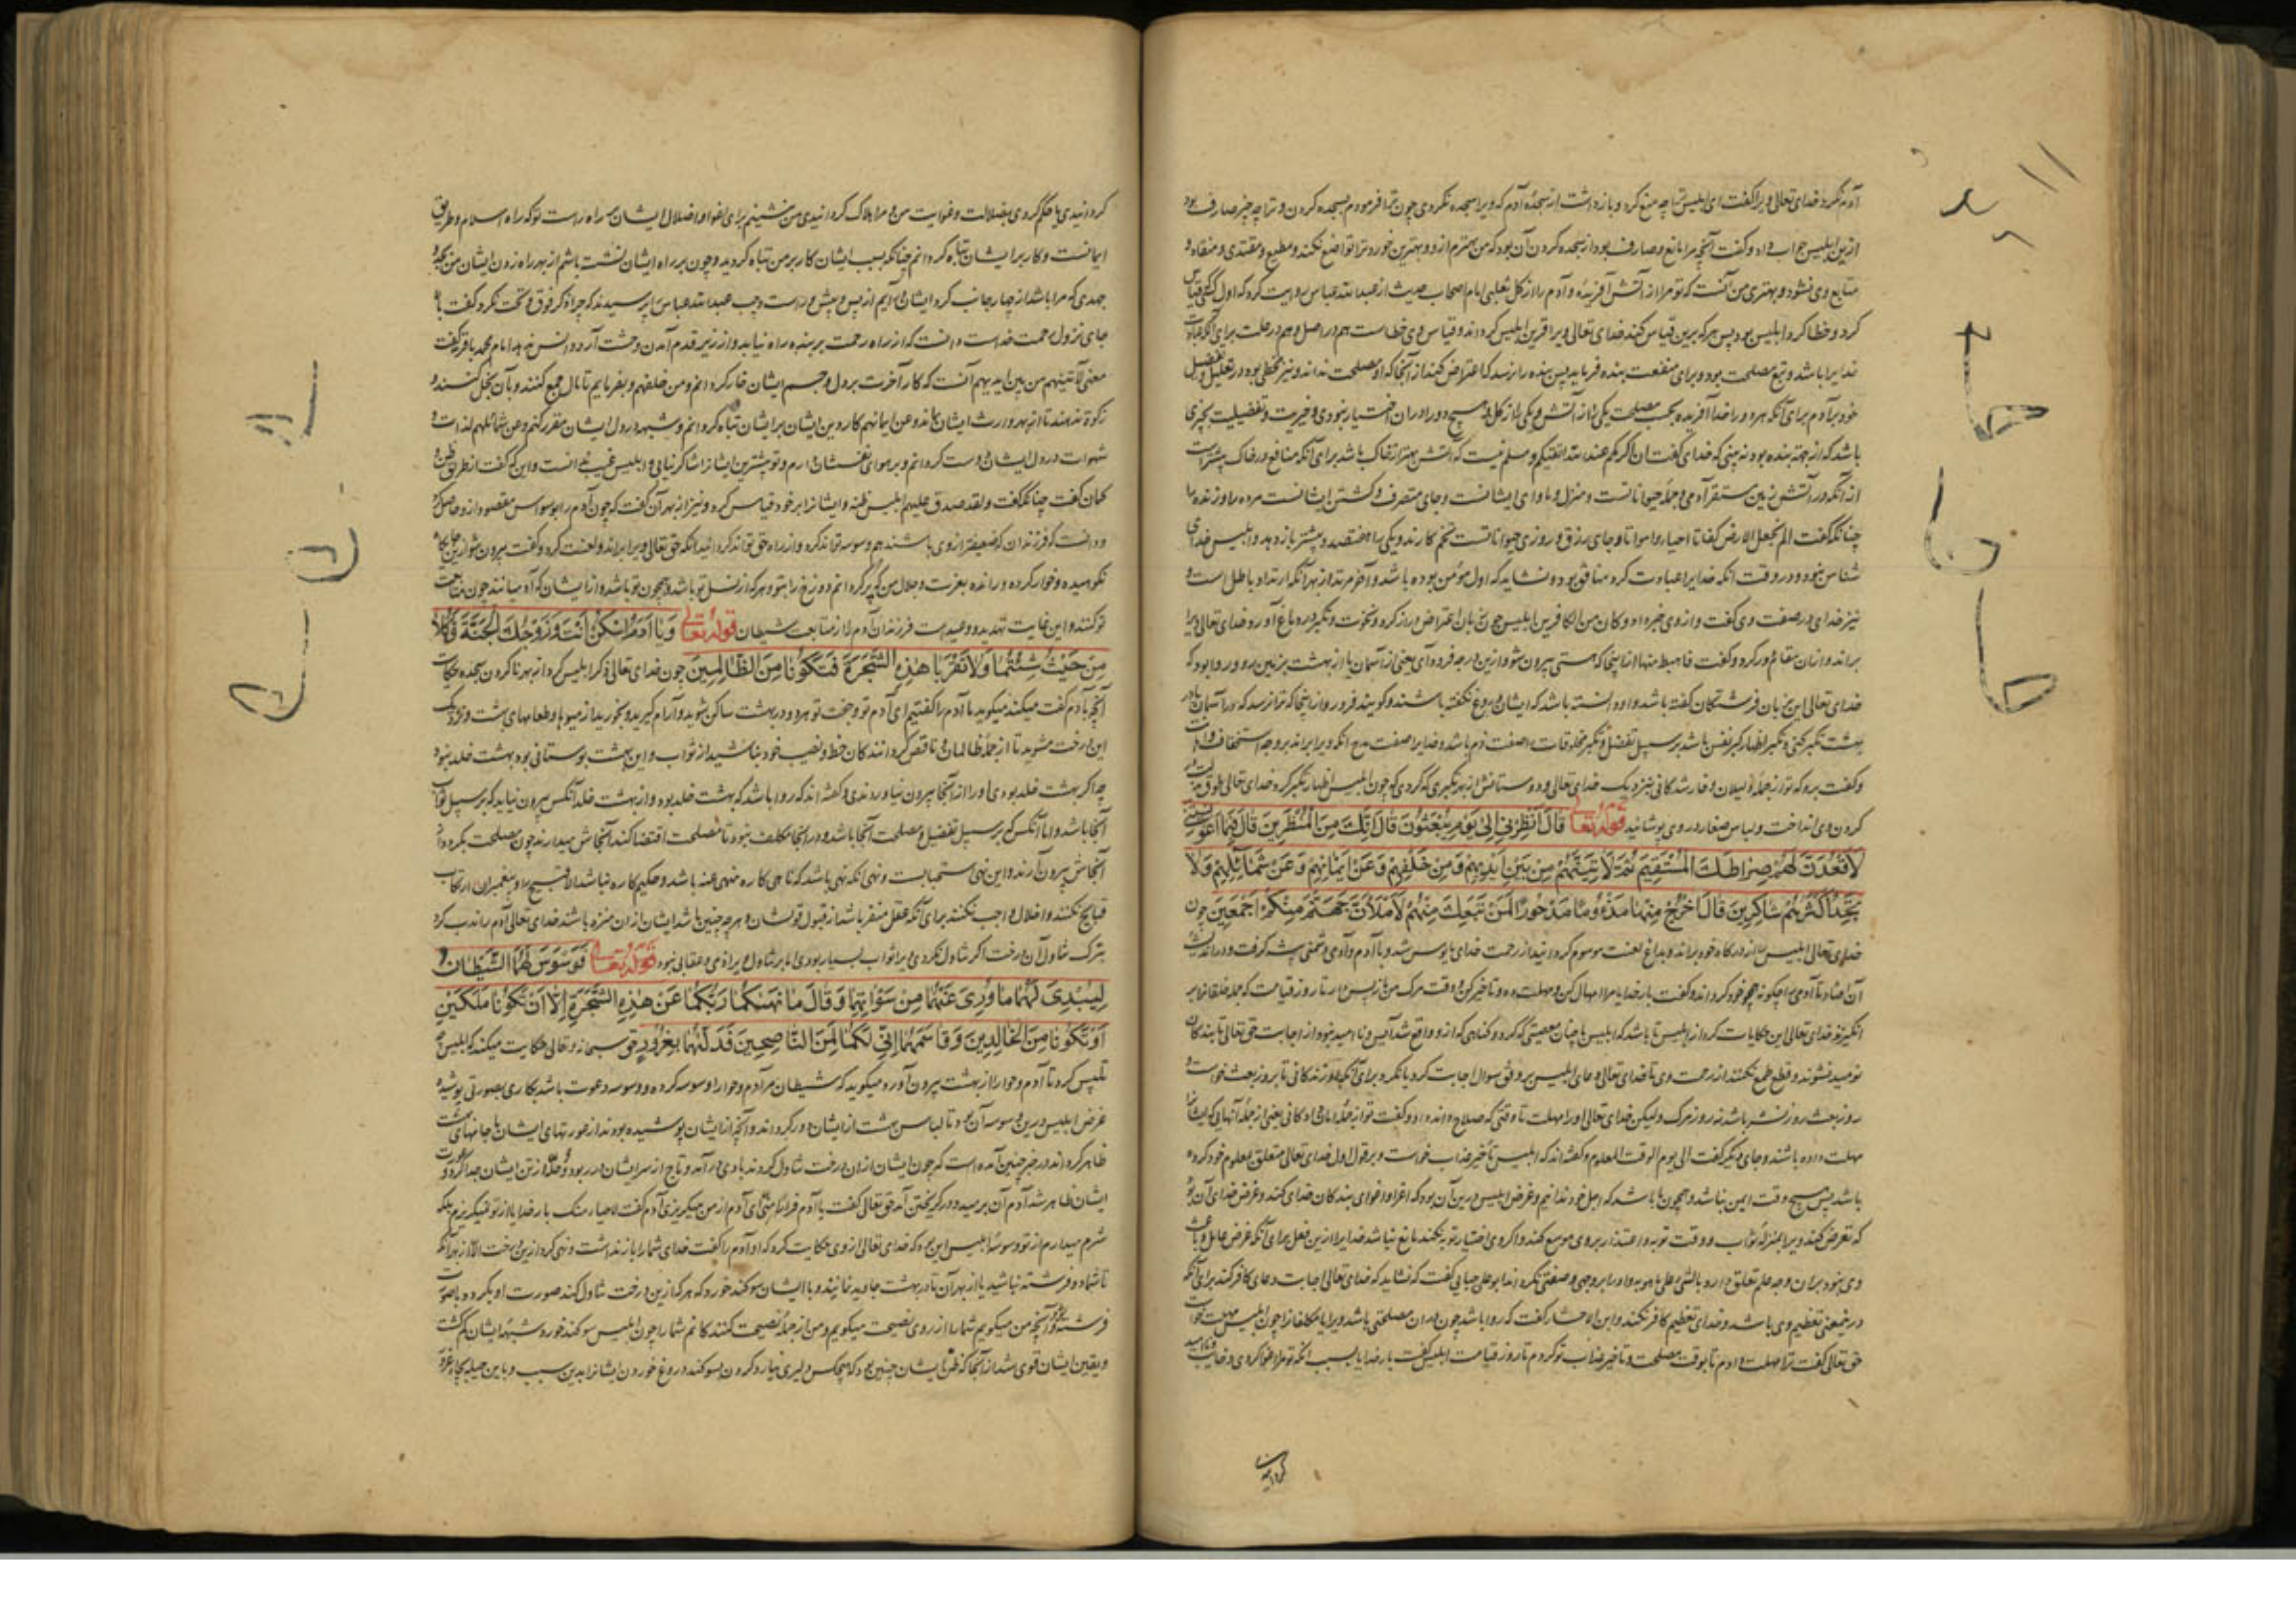 آدم نکرد خدای تعالی ویرا گفت ای ابلیس ترا چه منع کرد و باز داشت از سجدهٔ آدم که ویرا سجده نکردی چون ترا فرمودم بسجده کردن و ترا چه چیز صارف بود
ازین ابلیس جواب داد و گفت آنچه مرا مانع و صارف بود از سجده کردن آن بود که من بهترم ازو و بهترین خود را تواضع نکند و مطیع و مقتدی و منقاد و
متابع وی نشود و بهتری من آنست که تو مرا از آتش آفریدهٔ و آدم را از گل ثعلبی امام اصحاب حدیث از عبدالله عباس روایت کرد که اول کسی که قیاس
کرد و خطا کرد ابلیس بود پس هر که برین قیاس کند خدای تعالی ویرا قرین ابلیس کرداند و قیاس وی خطاست هم در اصل و هم در علت برای آنکه عبادت
خدایرا باشد و تبع مصلحت بود و برای منفعت بنده فرماید پس بنده را نرسد که اعتراض کند از آنجا که او مصلحت نداند و نیز مخطی بود در تعلیل و تفضیل
خود بر آدم برای آنکه هر دو را خدا آفریده بحسب مصلحت یکی را از آتش و یکی را از گل و هیچ دو را در آن اختیار نبود وی و خیریت و تفضیلیت بچیزی
باشد که از جهة بنده بود نه بینی که خدای گفت ان اکرمکم عند الله اتقیکم و مسلم نیست که آتش بهتر از خاک باشد برای آنکه منافع در خاک بیشتر است
از آنکه در آتش زمین مستقر آدمی و جملهٔ حیوانات است و منزل و ماوای ایشانست و جای متصرف و کشتن ایشانست مرده را و زنده را
چنانکه گفت الم نجعل الارض کفاتا احیاء وامواتا و جای رزق و روزی حیوانات است تخم کارند و یکی را هفتصد و بیشتر باز دهد و ابلیس خدای
شناس نبود و در وقت آنکه خدایرا عبادت کرد منافق بود و نشاید که اول مؤمن بوده باشد و آخر مرتد از بهر آنکه ارتداد باطل است و
نیز خدای در صفت وی گفت و از وی خبر داد و کان من الکافرین ابلیس چون زبان اعتراض دراز کرد و نخوت و تکبر در دماغ آورد خدای تعالی ویرا
براند و از آن مقام دور کرد و گفت فاهبط منها از اینجا که هستی بیرون شو و ازین درجه فرود آی یعنی از آسمان یا از بهشت بزمین رو و روا بود که
خدای تعالی این بزبان فرشتگان گفته باشد و او دانسته باشد که ایشان دروغ نگفته باشند و گویند فرو رو از اینجا که ترا نرسد که در آسمان یا در
بهشت تکبر کنی و تکبر اظهار کبر نفس باشد بر سبیل تفضل و تکبر مخلوقات را صفت ذم باشد و خدایرا صفت مدح آنکه ویرا براند بر وجه استخفاف و اهانت
و گفت برو که تو از جملهٔ ذلیلان و خار شدگانی بنزدیک خدای تعالی و دوستانش از بهر تکبری که کردی که چون ابلیس اظهار تکبر کرد خدای تعالی طوق لعنت در
کردن وی انداخت و لباس صغار در وی پوشانید قوله تعالی قَالَ اَنظِرْنِی اِلی یَوْمِ یُبْعَثُونَ قَالَ اِنَّكَ مِنَ الْمُنْظَرِینَ قَالَ فَبِمَا اَغْوَیْتَنِی
لَاَقْعُدَنَّ لَهُمْ صِرَاطَكَ الْمُسْتَقِیمَ ثُمَّ لَاٰتِیَنَّهُمْ مِنْ بَیْنِ اَیْدِیهِمْ وَمِنْ خَلْفِهِمْ وَعَنْ اَیْمَانِهِمْ وَعَنْ شَمَائِلِهِمْ وَلَا
تَجِدُ اَكْثَرَهُمْ شَاكِرِینَ قَالَ اخْرُجْ مِنْهَا مَذْءُومًا مَدْحُورًا لَمَنْ تَبِعَكَ مِنْهُمْ لَاَمْلَاَنَّ جَهَنَّمَ مِنْكُمْ اَجْمَعِینَ چون
خدای تعالی ابلیس را از درگاه خود براند و بداغ لعنت موسوم کردانید از رحمت خدای مایوس شد و با آدم و آدمی دشمنی پیش گرفت و در اندیشه
آن افتاد تا آدمی را چگونه همچو خود کرداند و گفت بار خدایا مرا امهال کن و مهلت ده و تاخیر کن وقت مرگ من باز پس دار تا روز قیامت که جمله خلقانرا بر
انگیزند خدای تعالی این حکایات کرد از ابلیس تا باشد که ابلیس با چنان معصیتی که کرد و گناهی که ازو واقع شد آیس و ناامید نبود از اجابت حق تعالی تا بندگان
نومید نشوند و قطع طمع نکنند از رحمت وی تا خدای تعالی دعای ابلیس بر وفق سوال اجابت کرد یا نکرد برای آنکه او زندگانی تا بروز بعث خواست و
روز بعث روز نشر باشد نه روز مرگ ولیکن خدای تعالی او را مهلت تا وقتی که صلاح داند داد و گفت تو از جملهٔ امان دادگانی یعنی از جملهٔ آنهایی که ایشانرا
مهلت داده باشند و جای دیگر گفت الی یوم الوقت المعلوم و گفته اند که ابلیس تاخیر عذاب خواست و بر قول اول خدای تعالی متعلق بمعلوم خود کرده
باشد پس هیچ وقت ایمن نباشد و همچون ما باشد که اجل خود ندانیم و غرض ابلیس درین آن بود که اغرا و اغوای بندگان خدای کند و غرض خدای آن بود
که تعرض کند ویرا بمنزلهٔ ثواب و وقت توبه و اعتذار بر وی موسع کند و اگر وی اختیار توبه نکند مانع نباشد خدایرا ازین فعل برای آنکه غرض حاصل و باعث
وی نبود بر آن وجه علم تعلق دارد بالشیء علی ما هو به و او را بر وجهی و صفتی نکرداند ابو علی جبایی گفت که نشاید که خدای تعالی اجابت دعای کافر کند برای آنکه
درین معنی تعظیم وی باشد و خدای تعظیم کافر نکند و ابن اخشاد گفت که روا باشد چون در آن مصلحتی باشد ویرا یا مکلفانرا چون ابلیس مهلت خواست
حق تعالی گفت ترا مهلت دادم تا بوقت مصلحت و تاخیر عذاب تو کردم تا روز قیامت ابلیس گفت بار خدایا بسبب آنکه تو مرا اغوا کردی و خایب و ناامید
کردانیدی یا حکم کردی بضلالت و غوایت من و مرا هلاک کردانیدی من بنشینم برای اغوا و اضلال ایشان بر سر راه راست تو که راه اسلام و طریق
ایمانست و کار بر ایشان تباه کردانم چنانکه بسبب ایشان کار بر من تباه کردید و چون بر راه ایشان نشسته باشم از بهر راه زدن ایشان من بجد و
جهدی که مرا باشد از چهار جانب گرد ایشان درآیم از پس و پیش و راست و چپ عبدالله عباس را پرسیدند که چرا ذکر فوق و تحت نکرد گفت بالا
جای نزول رحمت خداست دانست که از راه رحمت بر بنده راه نیابد و از زیر قدم آمدن وحشت آرد و انس نبرد امام محمد باقر گفت
معنی لآتینهم من بین ایدیهم آنست که کار آخرت بر دل و جسم ایشان خار کردانم و من خلفهم و بفرمایم تا مال جمع کنند و بآن بخل کنند و
زکوة ندهند تا از بهر وارث ایشان بماند و عن ایمانهم کار دین ایشان بر ایشان تباه کردانم و شبهه در دل ایشان مقرر کنم و عن شمائلهم لذات و
شهوات در دل ایشان دوست کردانم و بر هوای نفسشان دارم و تو بیشترین ایشانرا شاکر نیابی و ابلیس غیب نمی دانست و این که گفت از طریق ظن و
کمان گفت چنانکه گفت ولقد صدق علیهم ابلیس ظنه و ایشانرا بر خود قیاس کرد و نیز از بهر آن گفت که چون آدم را بوسواس مقصود ازو حاصل کرد
و دانست که فرزندان که ضعیفتر از وی باشند هم وسوسه تواند کرد و از راه حق تواند کردانید آنگه حق تعالی ویرا براند و لعنت کرد و گفت بیرون شو ازین جایگاه
نکوهیده و خوار کرده و رانده بعزت و جلال من که پر کردانم دوزخ را بتو و هر که از نسل تو باشد و همچون تو باشد و از ایشان که آدمیانند چون متابعت
تو کنند و این غایت تهدید و وعید است فرزندان آدم را از متابعت شیطان قوله تعالی وَیَا اٰدَمُ اسْكُنْ اَنْتَ وَزَوْجُكَ الْجَنَّةَ فَكُلَا
مِنْ حَیْثُ شِئْتُمَا وَلَا تَقْرَبَا هٰذِهِ الشَّجَرَةَ فَتَكُونَا مِنَ الظَّالِمِینَ چون خدای تعالی ذکر ابلیس کرد از بهر ناکردن سجده حکایت
آنچه بآدم گفت میکند میگوید ما آدم را گفتیم ای آدم تو و جفت تو هر دو در بهشت ساکن شوید و آرام گیرید و بخورید از میوها و طعامهای بهشت و نزدیک
این درخت مشوید تا از جملهٔ ظالمان و ناقص گردانندگان حظ و نصیب خود نباشید از ثواب و این بهشت بوستانی بود بهشت خلد نبود
چه اگر بهشت خلد بودی او را از آنجا بیرون نیاوردندی و گفته اند که روا باشد که بهشت خلد بود و از بهشت خلد آنکس بیرون نیاید که بر سبیل ثواب
آنجا باشد و اما آنکس که بر سبیل تفضیل و مصلحت آنجا باشد و در آنجا مکلف نبود تا مصلحت اقتضا کند آنجاش میدارند چون مصلحت بگردد از
آنجاش بیرون آرند و این نهی استحبابست و نهی آنکه نهی باشد که ناهی کاره منهی عنه باشد و حکیم کاره نباشد الا قبیح را و پیغمبران ارتکاب
قبایح نکنند و اخلال واجب نکنند برای آنکه عقل منفر باشد از قبول قولشان و هر چه چنین باشد ایشان از آن منزه باشند خدای تعالی آدم را ندب کرد
بترک تناول آن درخت اگر تناول نکردی ویرا ثواب بسیار بودی اما بر تناول ویرا ذمی و عقابی نبود قوله تعالی فَوَسْوَسَ لَهُمَا الشَّیْطَانُ
لِیُبْدِیَ لَهُمَا مَا وُرِیَ عَنْهُمَا مِنْ سَوْاٰتِهِمَا وَقَالَ مَا نَهٰیكُمَا رَبُّكُمَا عَنْ هٰذِهِ الشَّجَرَةِ اِلَّا اَنْ تَكُونَا مَلَكَیْنِ
اَوْ تَكُونَا مِنَ الْخَالِدِینَ وَقَاسَمَهُمَا اِنِّی لَكُمَا لَمِنَ النَّاصِحِینَ فَدَلّٰیهُمَا بِغُرُورٍ حق سبحانه و تعالی حکایت میکند که ابلیس
تلبیس کرد تا آدم و حوا را از بهشت بیرون آورد میگوید که شیطان مر آدم و حوا را وسوسه کرد و وسوسه دعوت باشد بکاری بصورتی پوشیده
غرض ابلیس درین وسوسه آن بود تا لباس بهشت از ایشان دور کرداند و آنچه از ایشان پوشیده بودند از عورتهای ایشان با جامهای بهشت
ظاهر کرداند در خبر چنین آمده است که چون ایشان از آن درخت تناول کردند بادی درآمد و تاج از سر ایشان در ربود و حلها از تن ایشان جدا کرد و عورت
ایشان ظاهر شد آدم آن بدید و در گریختن آمد حق تعالی گفت یا آدم فرارا منی ای آدم از من میگریزی آدم گفت لا حیاء منک بار خدایا از تو نمیگریزم بلکه
شرم میدارم از تو وسوسهٔ ابلیس این بود که خدای تعالی از وی حکایت کرد که او آدم را گفت خدای شما را باز نداشت و نهی کرد ازین درخت الا از بهر آنکه
تا شما دو فرشته نباشید یا از بهر آن تا در بهشت جاوید نمانید و با ایشان سوگند خورد که هر که ازین درخت تناول کند صورت او بگردد و با صورت
فرشته شود و آنچه من میگویم شما را از روی نصیحت میگویم و من از جملهٔ نصیحت کنندگانم شما را چون ابلیس سوگند خورد شبهه ایشان گشت
و یقین ایشان قوی شد از آنجا که ظن ایشان چنین بود که هیچکس دلیری نیارد کردن بسوگند دروغ خوردن ایشانرا بدین سبب و باین حیله بچاه غرور